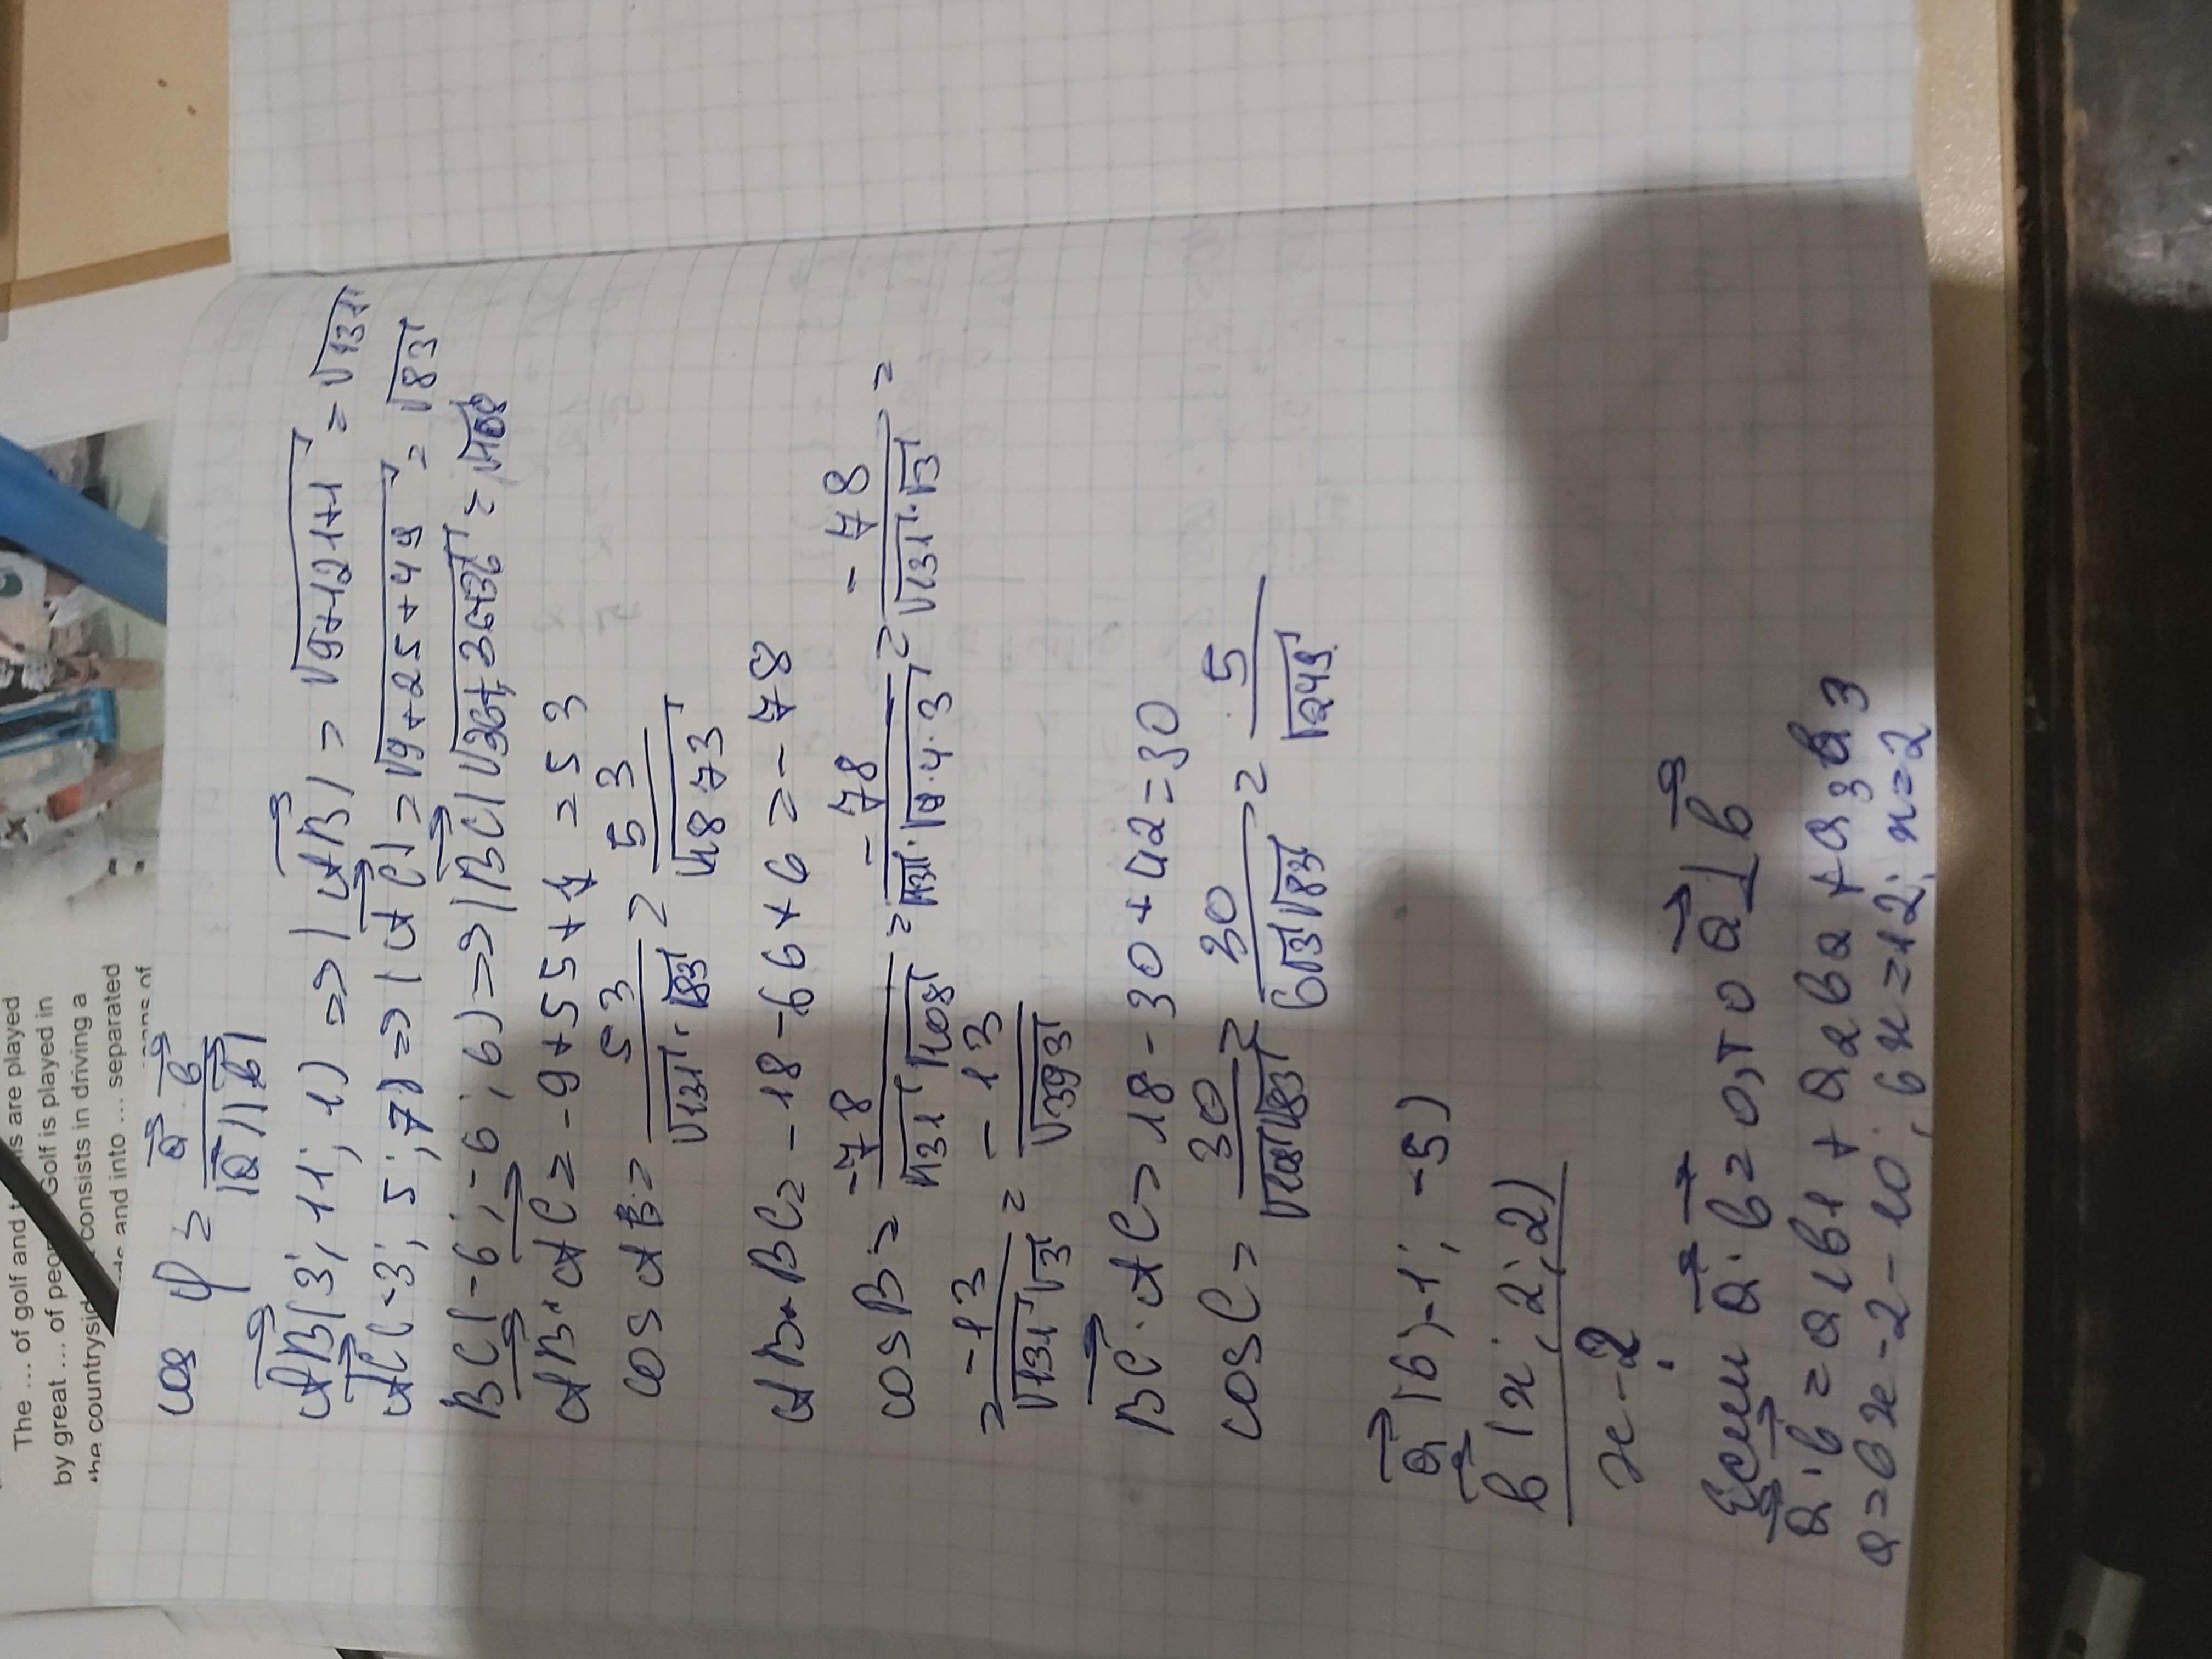 The ... of golf and t   ls are played
by great ... of peop   Golf is played in
the countrysid   consists in driving a
and into ... separated
cos φ = a⃗ b⃗ / |a⃗||b⃗|
AB⃗(3; 11; 1) => |AB⃗| = √9+121+1 = √131
AC⃗(-3; 5; 7) => |AC⃗| = √9+25+49 = √83
BC⃗(-6; -6; 6) => |BC⃗| √36+36+36 = √108
AB⃗·AC⃗ = -9+55+7 = 53
cos A = 53 / √131·√83 = 53 / √10873
AB·BC = -18-66+6 = -78
cos B = -78 / √131 √108 = -78 / √131·√9·4·3 = -78 / √131·√3 =
= -13 / √131·√3 = -13 / √393
BC⃗·AC = 18-30+42=30
cos C = 30 / √108 √83 = 30 / 6√3√83 = 5 / √249
a⃗(6; -1; -5)
b⃗(x; 2; 2)
x-?
Если a⃗·b⃗=0, то a⃗⊥b⃗
a⃗·b⃗=a1b1+a2b2+a3b3
a=6x-2-10; 6x=12; x=2